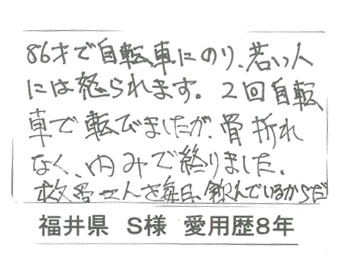 86才で自転車にのり、若い人
には怒られます。2回自転
車で転びましたが、骨折れ
なく、内みで終りました。
を毎日、飲んでいるからだ
福井県 S様 愛用歴8年